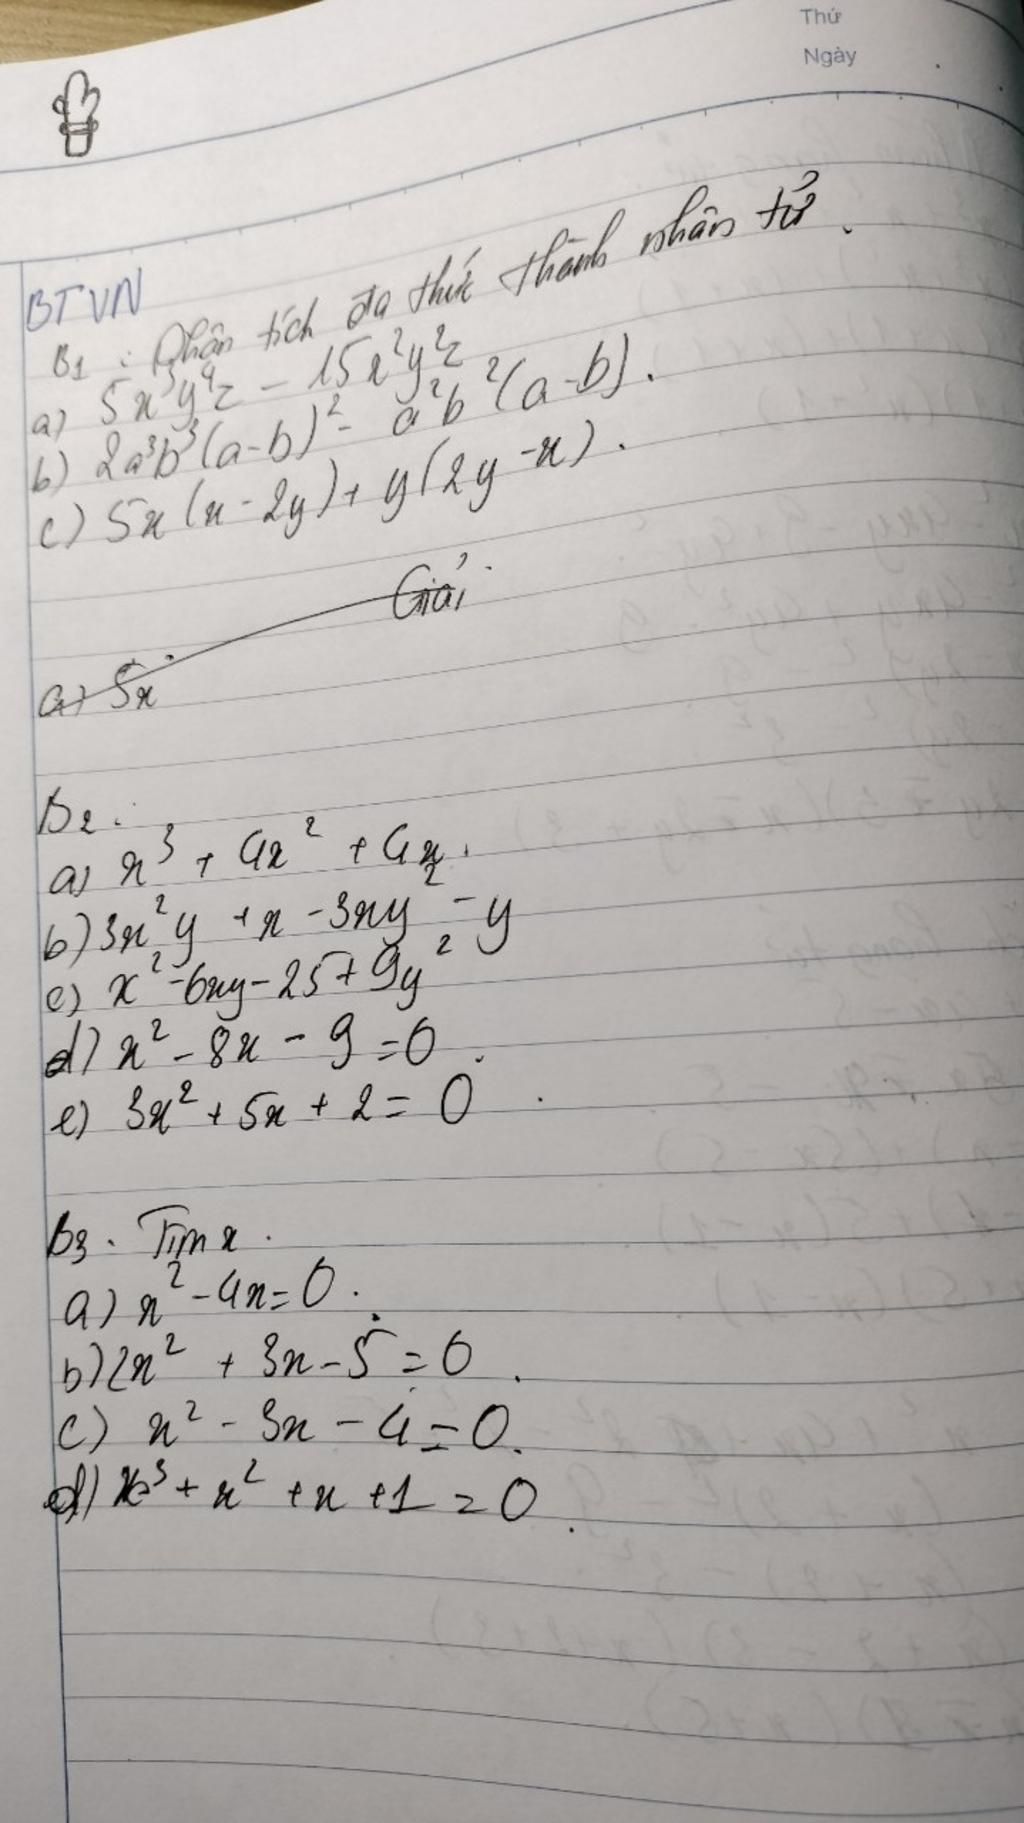 Thứ
Ngày
BTVN
B1 : Phân tích đa thức thành nhân tử.
a) 5x³y⁴z - 15x²y²z
b) 2a³b³(a-b)² - a²b²(a-b).
c) 5x(x-2y)+y(2y-x).
Giải
a) 5x
B2.
a) x³ + 4x² + 4x.
b) 3x²y + x - 3xy² - y
c) x² - 6xy - 25 + 9y²
d) x² - 8x - 9 = 0.
e) 3x² + 5x + 2 = 0
B3. Tìm x.
a) x² - 4x = 0.
b) 2x² + 3x - 5 = 0.
c) x² - 3x - 4 = 0.
d) x³ + x² + x + 1 = 0.